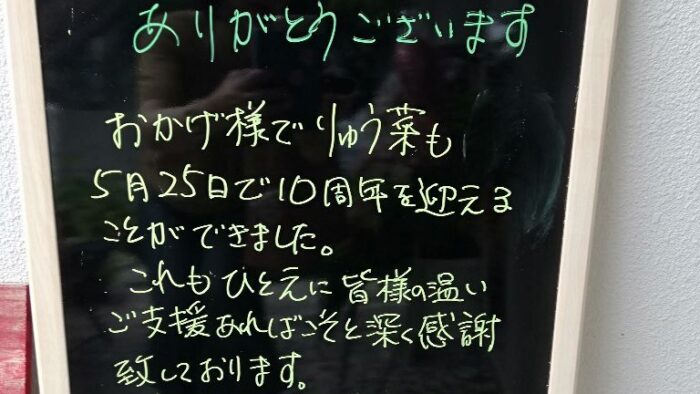 ありがとうございます
おかげ様でりゅう菜も
5月25日で10周年を迎える
ことができました。
これもひとえに皆様の温い
ご支援あればこそと深く感謝
致しております。